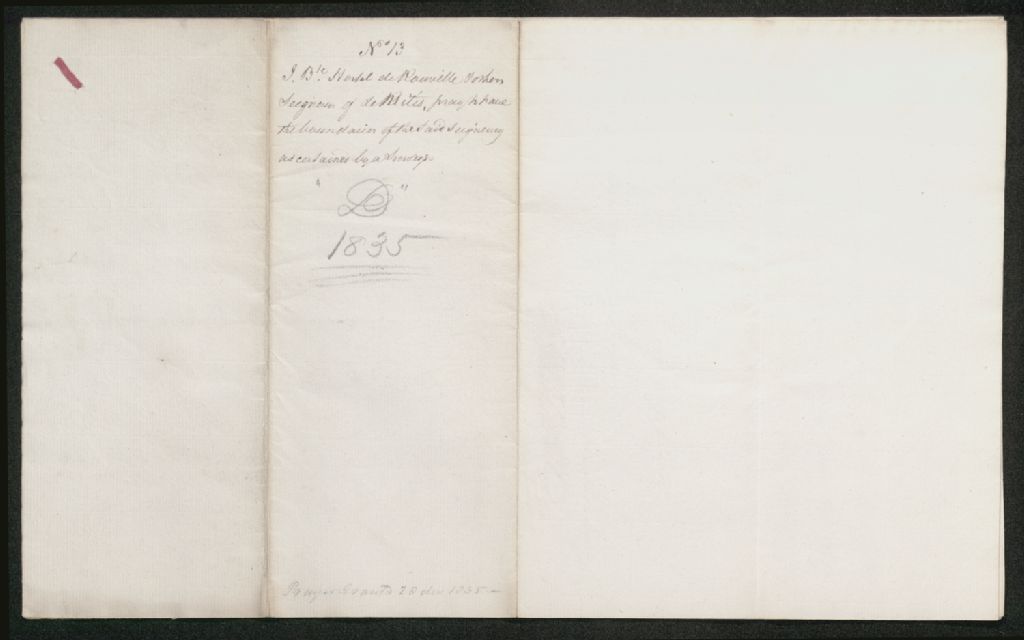 No 13
J. Bte Hertel de Rouville & others
Seigneurs of de Mitis, pray to have
the boundaries of the said Seigneury
ascertained by a Survey
"D"
1835
Prayer Granted 28 dec 1835 —